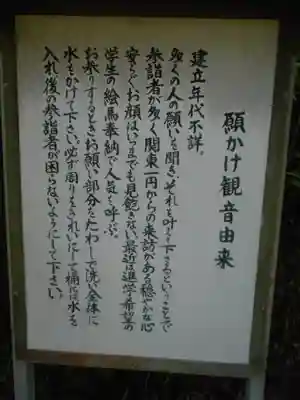 願かけ観音由来
建立年代不詳。
多くの人の願いを聞き、それを叶えて下さるということで
参詣者が多く関東一円からの来訪がある。穏やかな心
安らぐお顔はいつまでも見飽きない。最近は進学希望の
学生の絵馬奉納で人気を呼ぶ。
お参りするときお願い部分をたわしで洗い全体に
水をかけて下さい。必ず周りをきれいにして桶には水を
入れ後の参詣者が困らないようにして下さい。